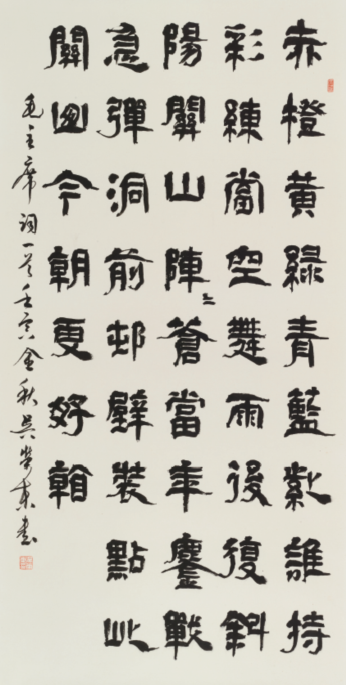 赤橙黃綠青藍紫誰持
彩練當空舞雨後復斜
陽關山陣〻蒼當年鏖戰
急彈洞前邨壁裝點此
關山今朝更好看
毛主席詞一首壬寅金秋吳東書